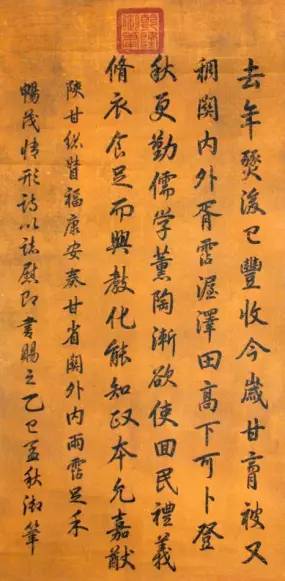 去年燹後已豐收今歲甘膏被又
稠關内外胥霑渥澤田高下可卜登
秋更勤儒学薰陶漸欲使囬民禮義
脩衣食足而興教化能知政本允嘉猷
陝甘総督福康安奏甘省關外内雨霑足禾
暢茂情形詩以誌慰即書賜之乙巳孟秋御筆